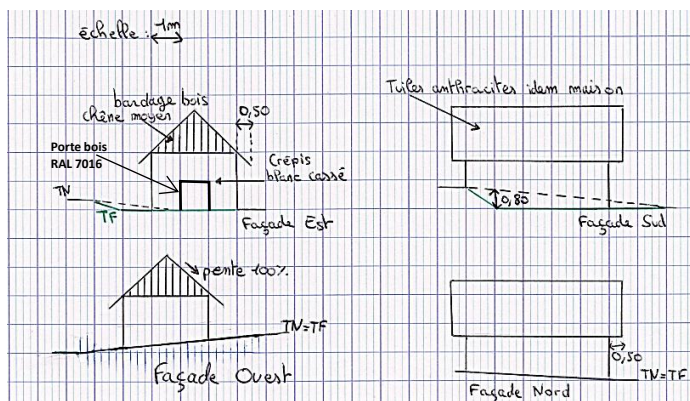 échelle : 1m
bardage bois
chêne moyen
0,50
Porte bois
RAL 7016
Crépis
blanc cassé
TN
TF
Façade Est
Tuiles anthracites idem maison
0,80
Façade Sud
pente 100%
TN=TF
Façade Ouest
0,50
TN=TF
Façade Nord